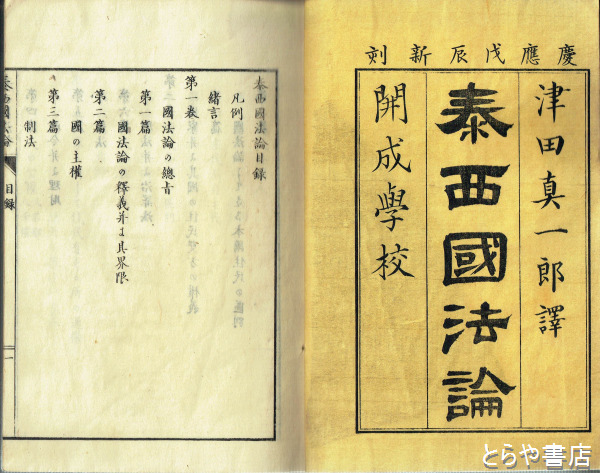 慶應戊辰新刻
津田真一郎譯
泰西國法論
開成學校
泰西國法論目録
凡例
緒言
第一巻
國法論の總旨
第一篇
國法論の釋義并に其界限
第二篇
國の主權
第三篇
制法
泰西國法論
目録
一
とらや書店